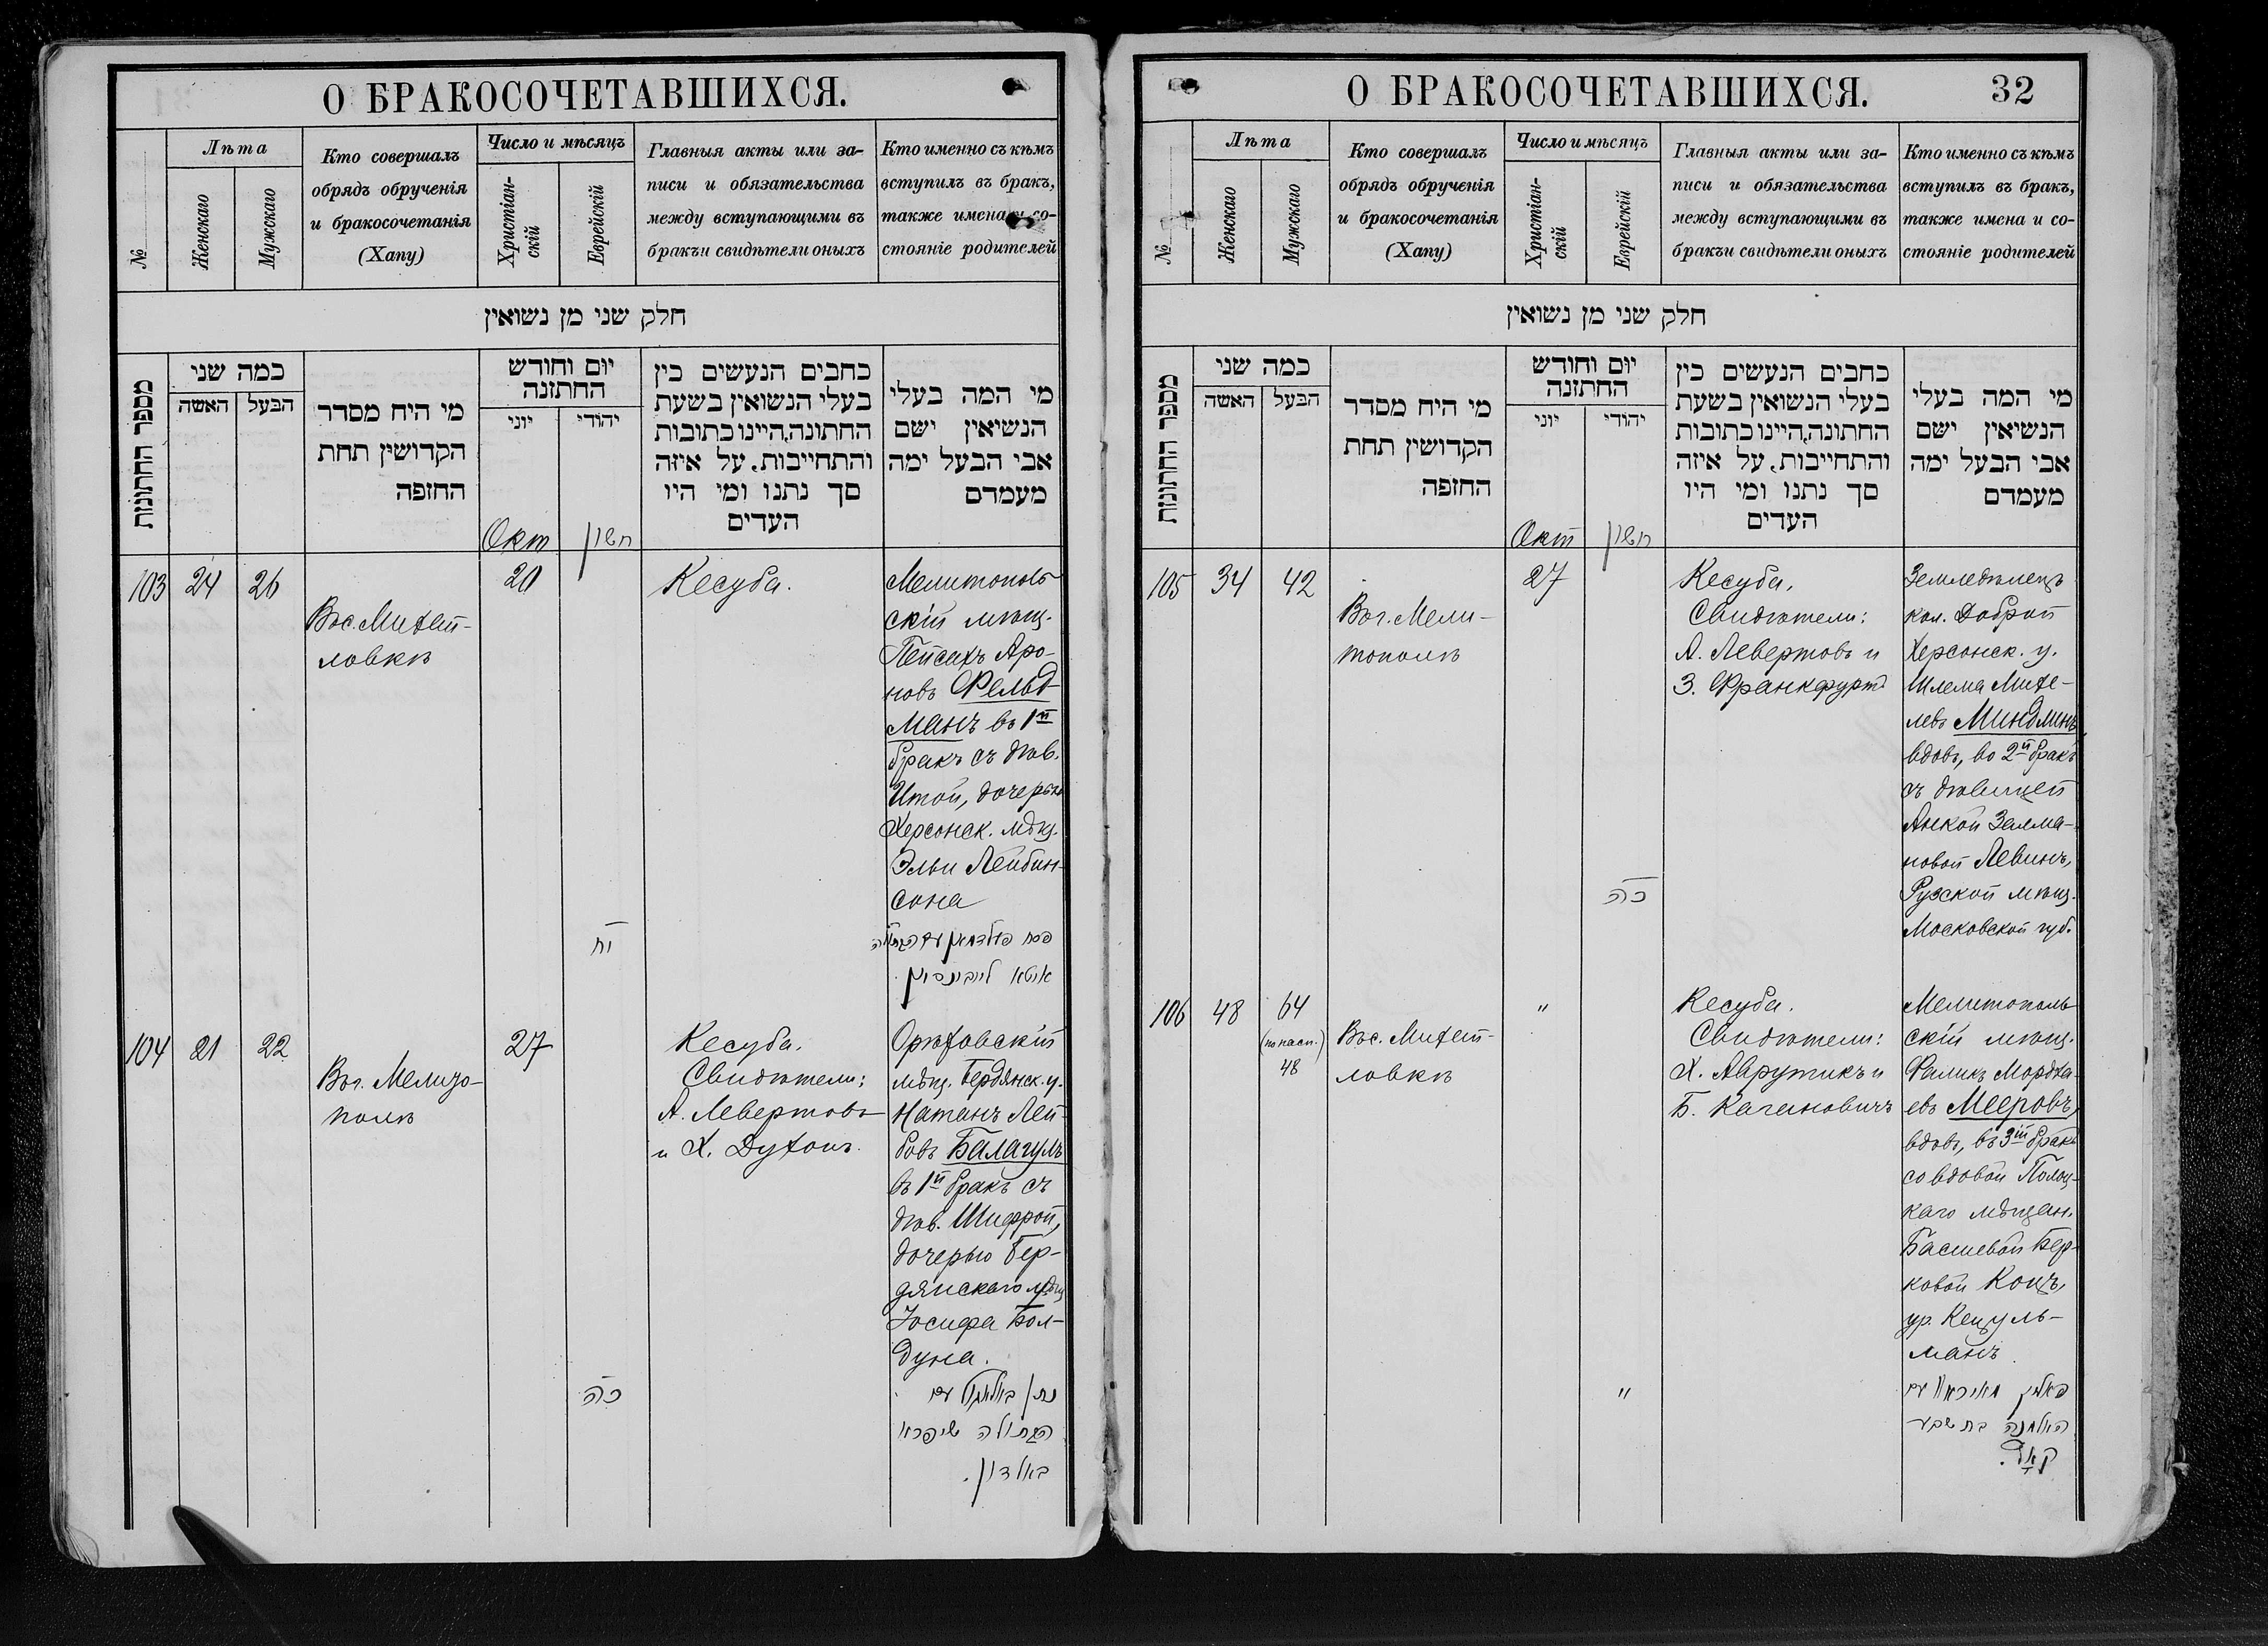 О БРАКОСОЧЕТАВШИХСЯ.
№
Лѣта
Женскаго
Мужскаго
Кто совершалъ
обрядъ обрученія
и бракосочетанія
(Хапу)
Число и мѣсяцъ
Христіан-
скій
Еврейскій
Главныя акты или за-
писи и обязательства
между вступающими въ
бракъи свидѣтели оныхъ
Кто именно съ кѣмъ
вступилъ въ бракъ,
также имена и со-
стояніе родителей
חלק שני מן נשואין
מספר החתונות
כמה שני
האשה
הבעל
מי היח מסדר
הקדושין תחת
החזפה
יום וחודש
החתזנה
יוני
יהודי
Окт
חשון
כחבים הנעשים כין
בעלי הנשואין בשעת
החתונה,היינו כתובות
והתחייבות. על איזה
סך נתנו ומי היו
העדים
מי המה בעלי
הנשיאין ישם
אבי הבעל ימה
מעמדם
103
24
26
Вс. Михай-
ловкѣ
20
יח
Кесуба.
Мелитополь
скій мѣщ.
Пейсахъ Аро-
новъ Фельд
манъ въ 1й
бракъ съ дѣв.
Итой, дочерью
Херсонск. мѣщ.
Эльи Лейбин-
сона
פסח פעלדמאן עם הבתולה
איטא לייבינסון.
104
21
22
Вг. Мелито-
полѣ
27
כה
Кесуба.
Свидѣтели:
А. Левертовъ
и Х. Духонъ.
Орѣховскій
мѣщ. Бердянск. у.
Натанъ Лей-
бовъ Балагулъ
въ 1й бракъ съ
дѣв. Шифрой,
дочерью Бер-
дянскаго мѣщ
Іосифа Бол-
дуна.
נתן באלאגול עם
הבתולה שיפרא
באלדון.
О БРАКОСОЧЕТАВШИХСЯ.
32
№
Лѣта
Женскаго
Мужскаго
Кто совершалъ
обрядъ обрученія
и бракосочетанія
(Хапу)
Число и мѣсяцъ
Христіан-
скій
Еврейскій
Главныя акты или за-
писи и обязательства
между вступающими въ
бракъи свидѣтели оныхъ
Кто именно съ кѣмъ
вступилъ въ бракъ,
также имена и со-
стояніе родителей
חלק שני מן נשואין
מספר החתונות
כמה שני
האשה
הבעל
מי היח מסדר
הקדושין תחת
החזפה
יום וחודש
החתזנה
יוני
יהודי
Окт
חשון
כחבים הנעשים כין
בעלי הנשואין בשעת
החתונה,היינו כתובות
והתחייבות. על איזה
סך נתנו ומי היו
העדים
מי המה בעלי
הנשיאין ישם
אבי הבעל ימה
מעמדם
105
34
42
Вг. Мели-
тополѣ
27
כה
Кесуба.
Свидѣтели:
А. Левертовъ и
З. Франкфуртъ
Земледѣлецъ
кол. Доброй
Херсонск. у.
Шлема Михе-
левъ Миндлинъ
вдовъ, во 2й бракъ
съ дѣвицей
Анкой Залма-
новой Левинъ,
Рузской мѣщ.
Московской губ.
106
48
64
(по пасп.)
48
Вс. Михай-
ловкѣ
"
"
Кесуба.
Свидѣтели:
Х. Аврутикъ и
Б. Качановичъ
Мелитополь
скій мѣщ.
Фаликъ Мордха-
евъ Мееровъ,
вдовъ, въ 3й бракъ
со вдовой Полоц-
каго мѣщан.
Басшевой Бер-
ковой Коцъ,
ур. Кецуль-
манъ
פאליק מאיראוו עם
האלמנה בת שבע
קאץ.